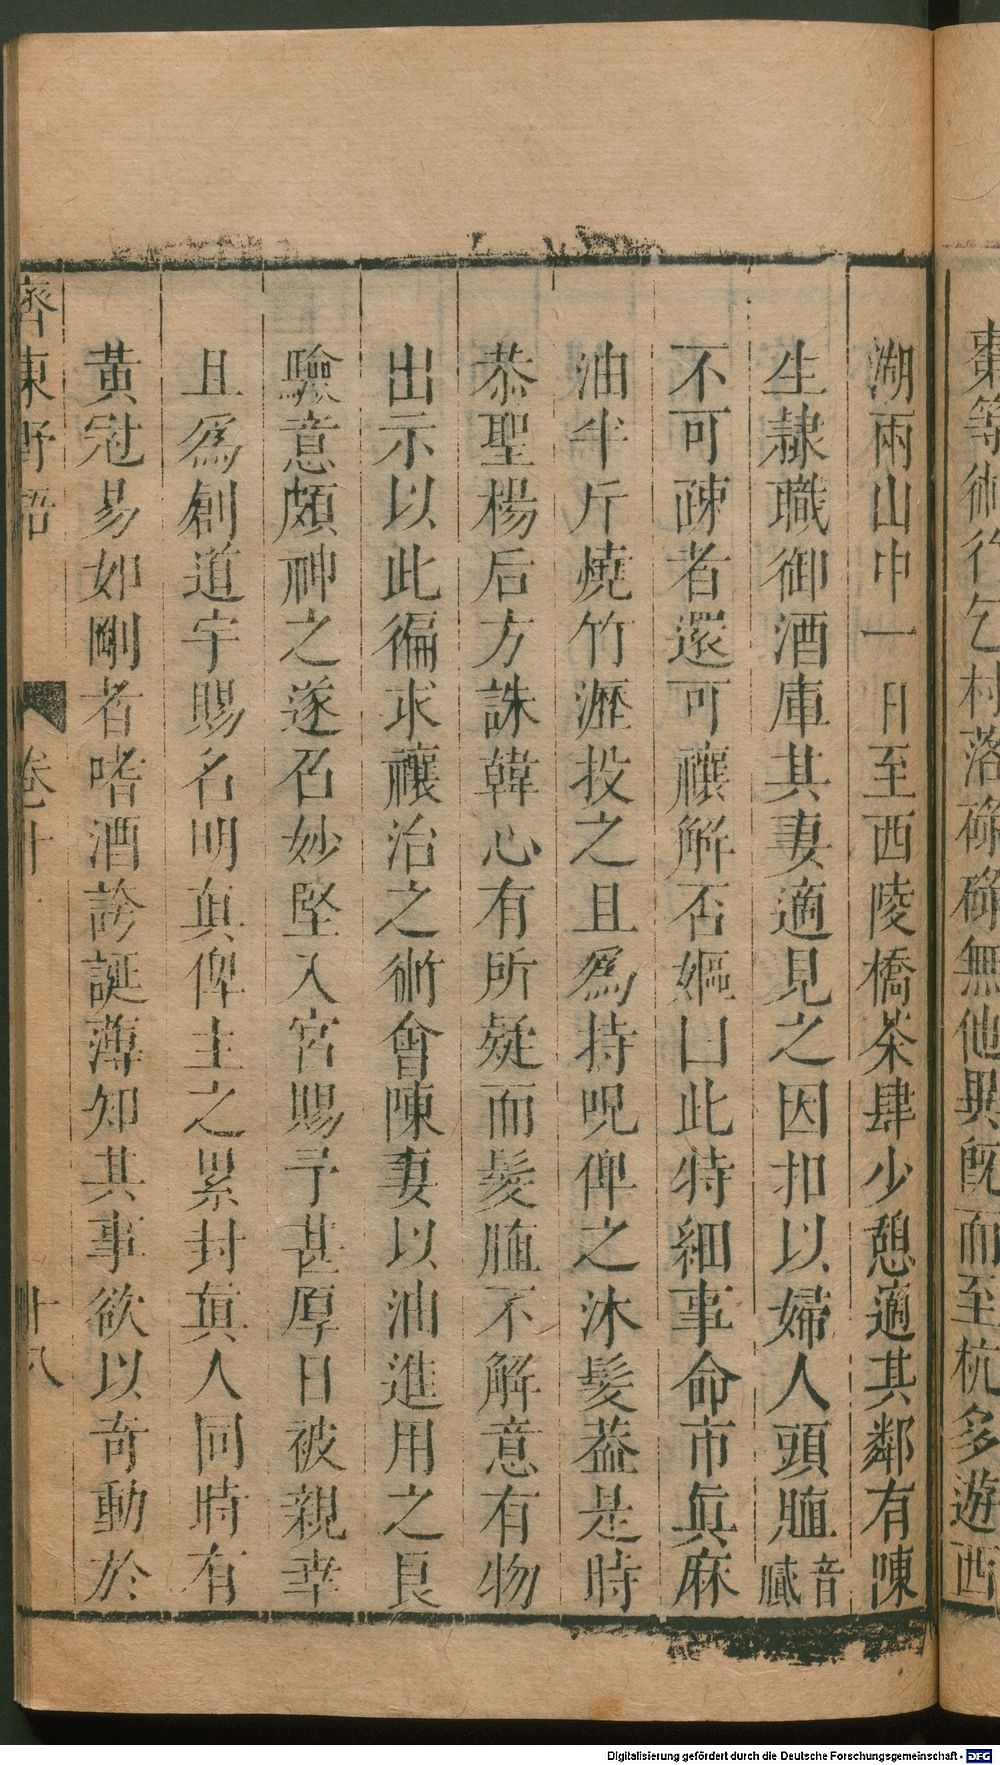 棗等術行乞村落碌碌無他異旣而至杭多遊西
湖兩山中一日至西陵橋茶肆少憩適其鄰有陳
生隷職御酒庫其妻適見之因扣以婦人頭䐈音䘌
不可疎者還可禳解否嫗曰此特細事命市眞麻
油半斤燒竹瀝投之且爲持呪俾之沐髮葢是時
恭聖楊后方誅韓心有所疑而髮䐈不解意有物
出示以此徧求禳治之術會陳妻以油進用之良
驗意頗神之遂召妙堅入宮賜予甚厚日被親幸
且爲創道宇賜名明眞俾主之累封眞人同時有
黃冠易如剛者嗜酒誇誕薄知其事欲以奇動於
齊東野語 卷十 十八
Digitalisierung gefördert durch die Deutsche Forschungsgemeinschaft - DFG